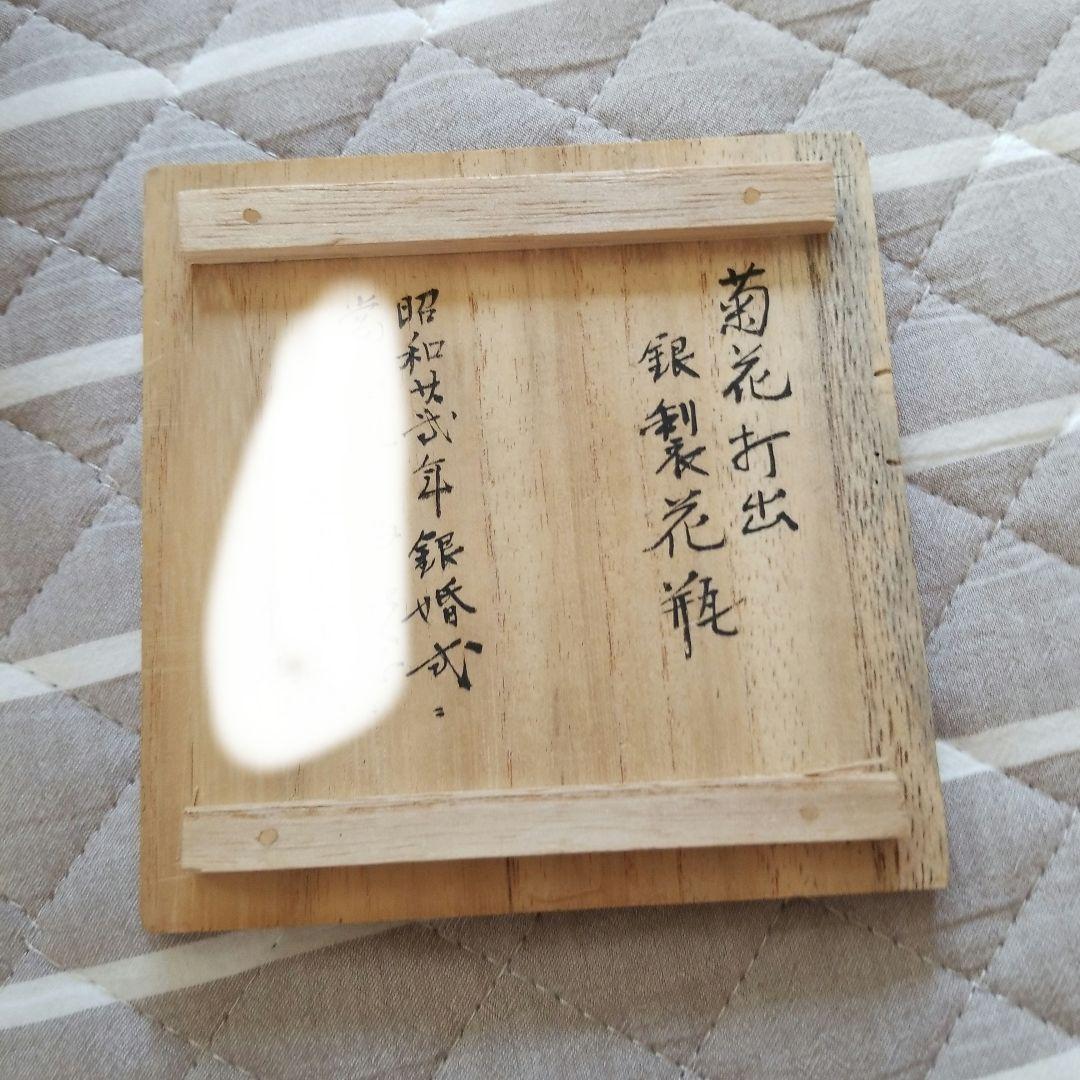 菊花打出
銀製花瓶
昭和廿弐年銀婚式